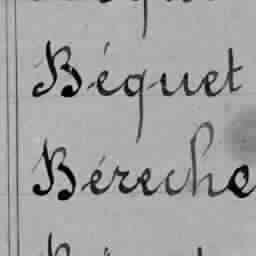 Béquet
Béreche